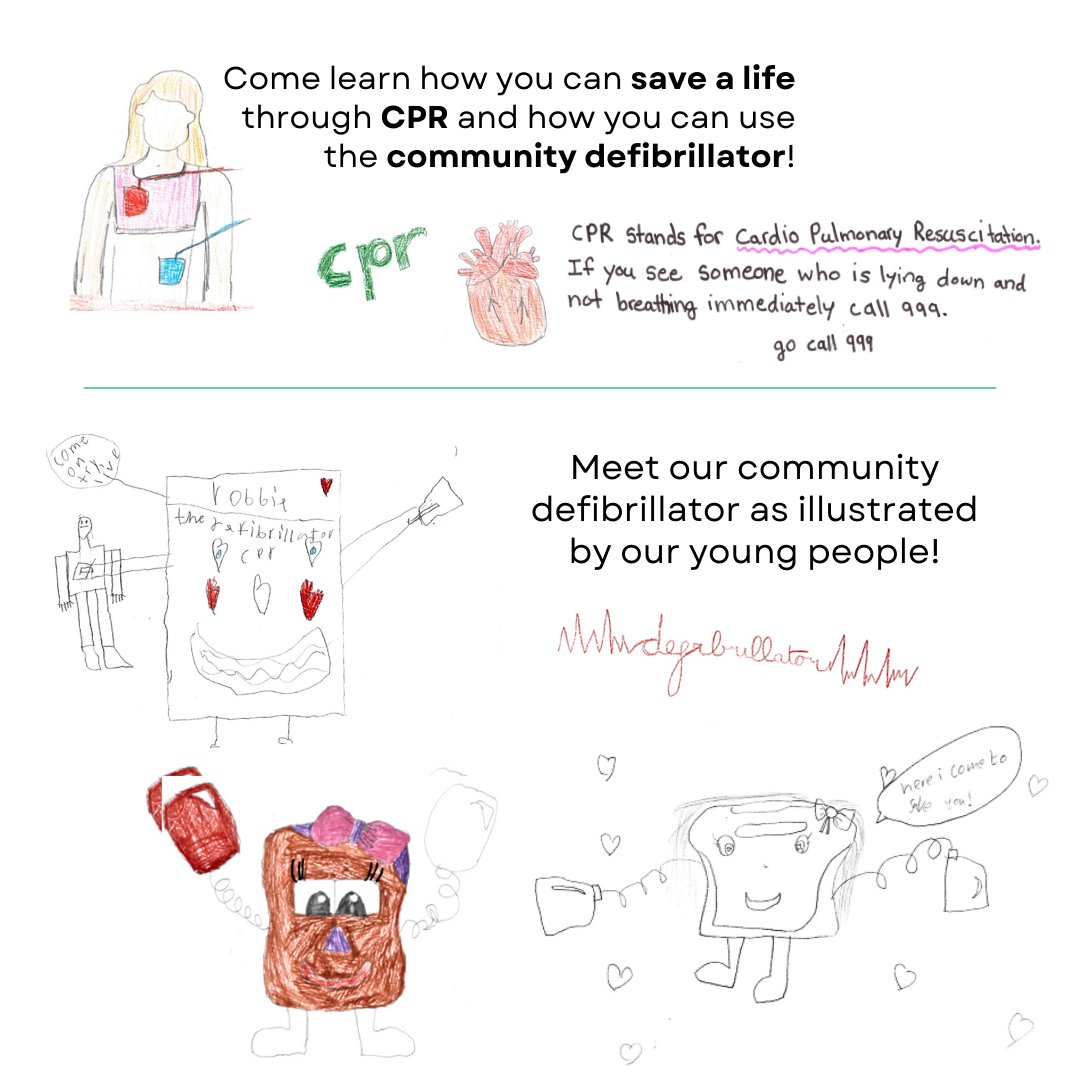 Come learn how you can save a life
through CPR and how you can use
the community defibrillator!
cpr
CPR stands for Cardio Pulmonary Resuscitation.
If you see someone who is lying down and
not breathing immediately call 999.
go call 999
come
on
robbie
the defibrillator
cpr
Meet our community
defibrillator as illustrated
by our young people!
here i come to
you!